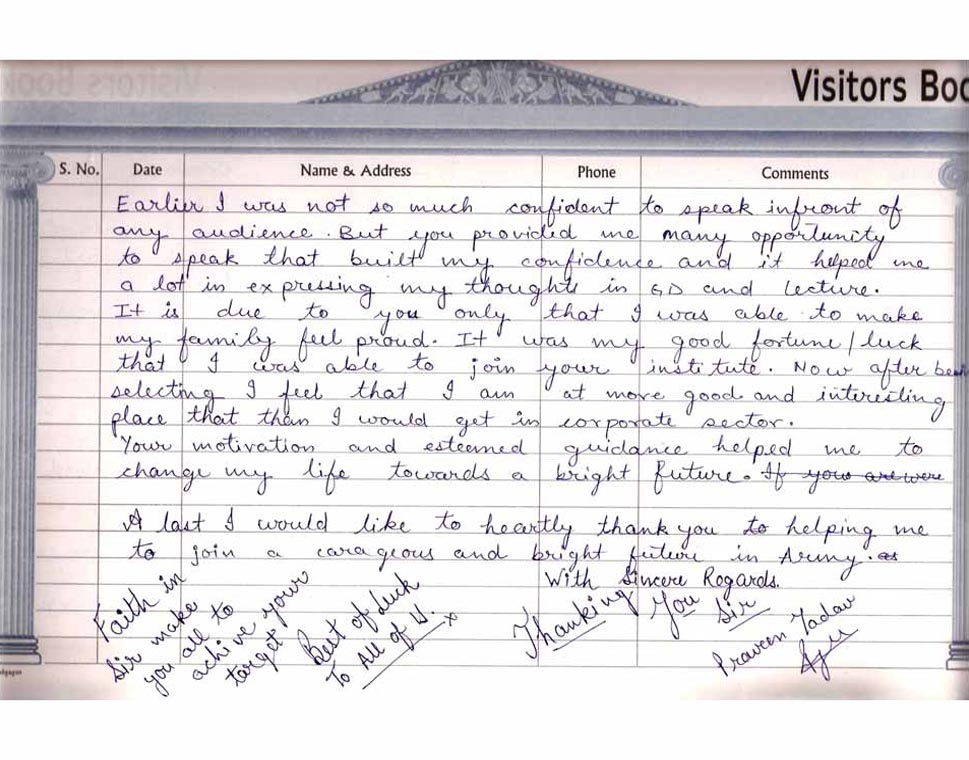 Visitors Boo
S. No. Date Name & Address Phone Comments
Earlier I was not so much confident to speak infront of
any audience. But you provided me many opportunity
to speak that built my confidence and it helped me
a lot in expressing my thoughts in GD and lecture.
It is due to you only that I was able to make
my family feel proud. It was my good fortune/luck
that I was able to join your institute. Now after
selecting I feel that I am at more good and interesting
place that than I would get in corporate sector.
Your motivation and esteemed guidance helped me to
change my life towards a bright future. If you are were
A last I would like to heartly thank you to helping me
to join a carageous and bright future in Army. as
With Sincere Regards.
Faith in
Sir make
you all to
achive your
target
Best of Luck
To All of U.
Thanking You Sir
Praveen Yadav